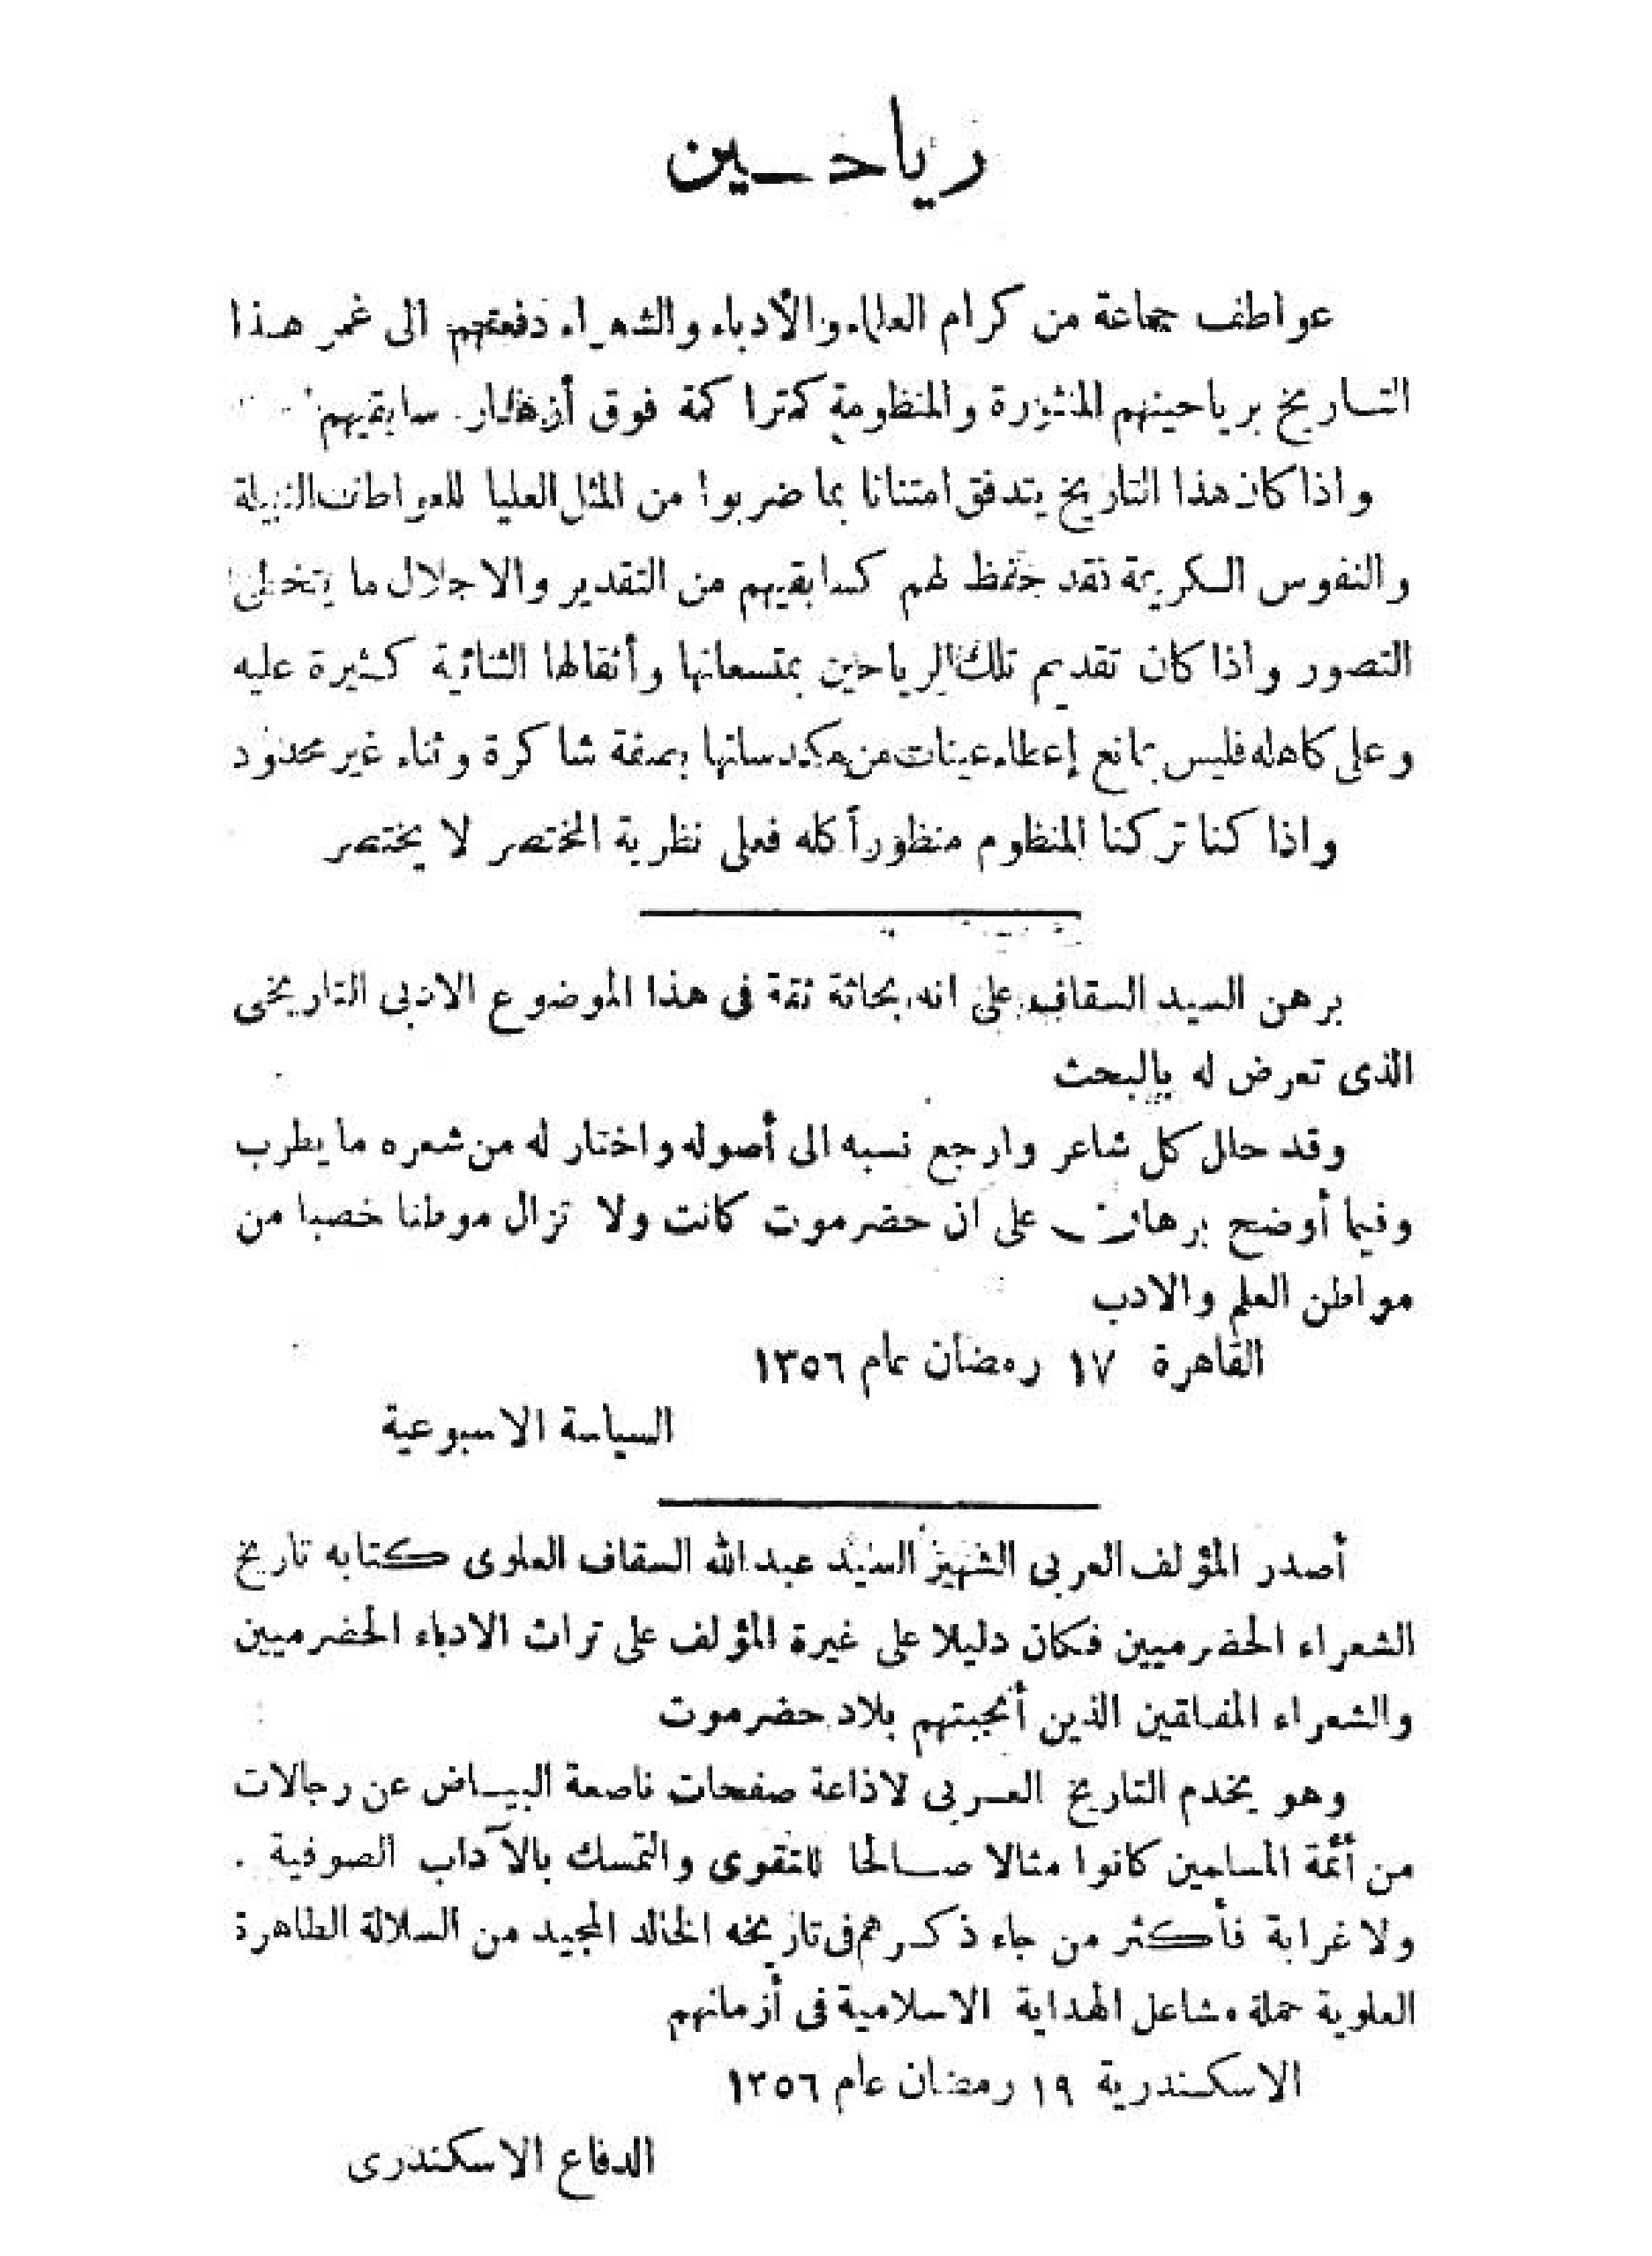 رياحـين
عواطف جماعة من كرام العلماء والأدباء والشعراء دفعتهم الى غمر هـذا
التـاريخ برياحينهم المنثورة والمنظومة كمتراكمة فوق أنظار سابقيهم
واذا كان هذا التاريخ يتدفق امتنانا بما ضربوا من المثل العليا للعواطف النبيلة
والنفوس الـكريمة فقد حفظ لهم كسابقيهم من التقدير والاجلال ما يتخطى
التصور واذا كان تقديم تلك الرياحين بمتسعاتها وأثقالها الثنائية كـثيرة عليه
وعلى كاهله فليس بمانع إعطاء عينات من مكدساتها بصفة شاكرة وثناء غير محدود
واذا كنا تركنا المنظوم منظوراً كله فعلى نظرية المختصر لا يختصر
برهن السيد السقاف على انه بحاثة ثقة فى هذا الموضوع الادبى التاريخى
الذى تعرض له بالبحث
وقد حلل كل شاعر وارجع نسبه الى أصوله واختار له من شعره ما يطرب
وفيما أوضح برهان على ان حضرموت كانت ولا تزال موطنا خصبا من
مواطن العلم والادب
القاهرة ١٧ رمضان عام ١٣٥٦
السياسة الاسبوعية
أصدر المؤلف العربى الشهير السيد عبد الله السقاف العلوى كتابه تاريخ
الشعراء الحضرميين فكان دليلا على غيرة المؤلف على تراث الادباء الحضرميين
والشعراء المفلقين الذين أنجبتهم بلاد حضرموت
وهو يخدم التاريخ العـربى لاذاعة صفحات ناصعة البيـاض عن رجالات
من أئمة المسلمين كانوا مثالا صـالحا للتقوى والتمسك بالآداب الصوفية .
ولا غرابة فأكثر من جاء ذكـرهم فى تاريخه الخالد المجيد من السلالة الطاهرة
العلوية حملة مشاعل الهداية الاسلامية فى أزمانهم
الاسكـندرية ١٩ رمضان عام ١٣٥٦
الدفاع الاسكندرى